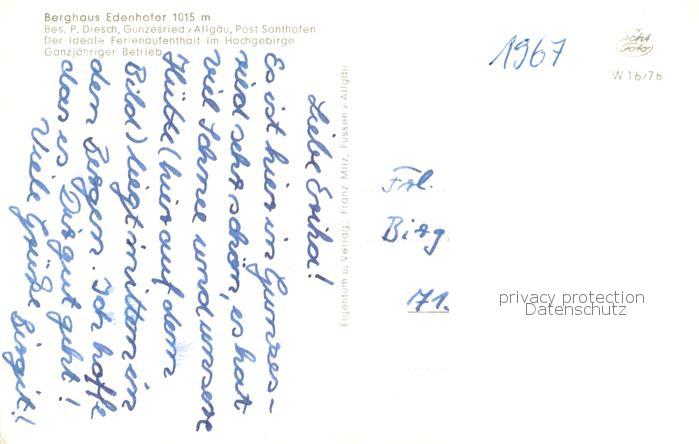 Berghaus Edenhofer 1015 m
Bes. P. Diesch, Gunzesried, Allgäu, Post Sonthofen
Der ideale Ferienaufenthalt im Hochgebirge
Ganzjähriger Betrieb
Liebe Erika!
Es ist hier in Gunzes-
ried sehr schön, es hat
viel Schnee und unsere
Hütte (hier auf dem
Bild) liegt mitten in
den Bergen. Ich hoffe
das es Dir gut geht!
Viele Grüße Birgit!
Eigentum u. Verlag: Franz Milz, Füssen, Allgäu
1967
Echt
Foto
W 16/76
Frl.
Birg
71.
privacy protection
Datenschutz